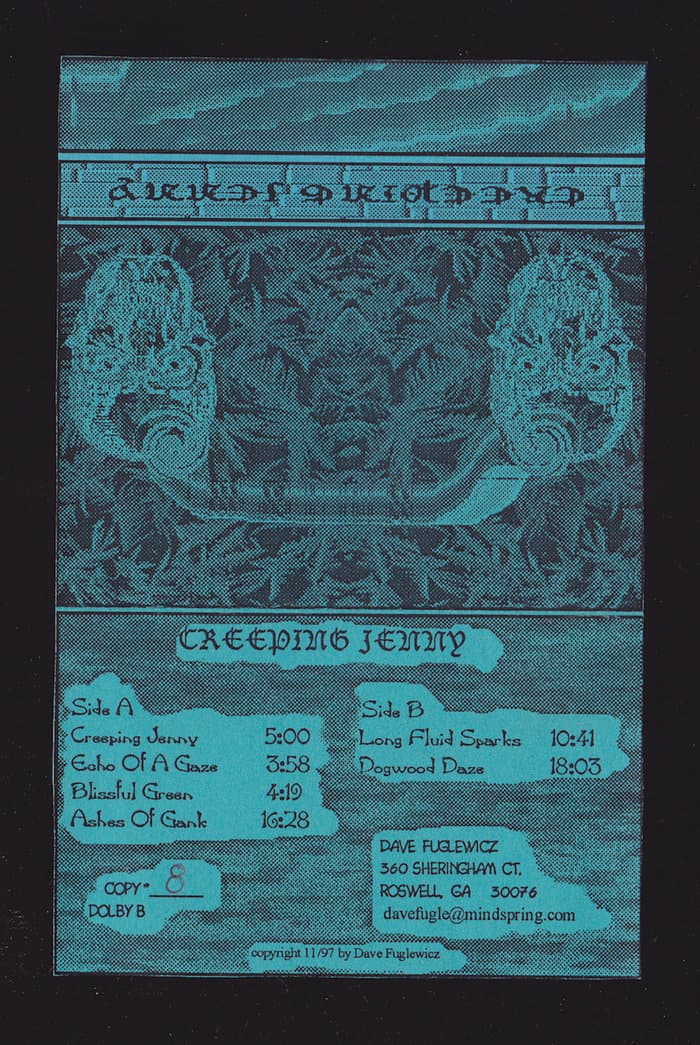 CREEPING JENNY
CREEPING JENNY
Side A
Creeping Jenny 5:00
Echo Of A Gaze 3:58
Blissful Green 4:19
Ashes Of Gank 16:28
Side B
Long Fluid Sparks 10:41
Dogwood Daze 18:03
COPY# 8
DOLBY B
DAVE FUGLEWICZ
360 SHERINGHAM CT.
ROSWELL, GA 30076
davefugle@mindspring.com
copyright 11/97 by Dave Fuglewicz